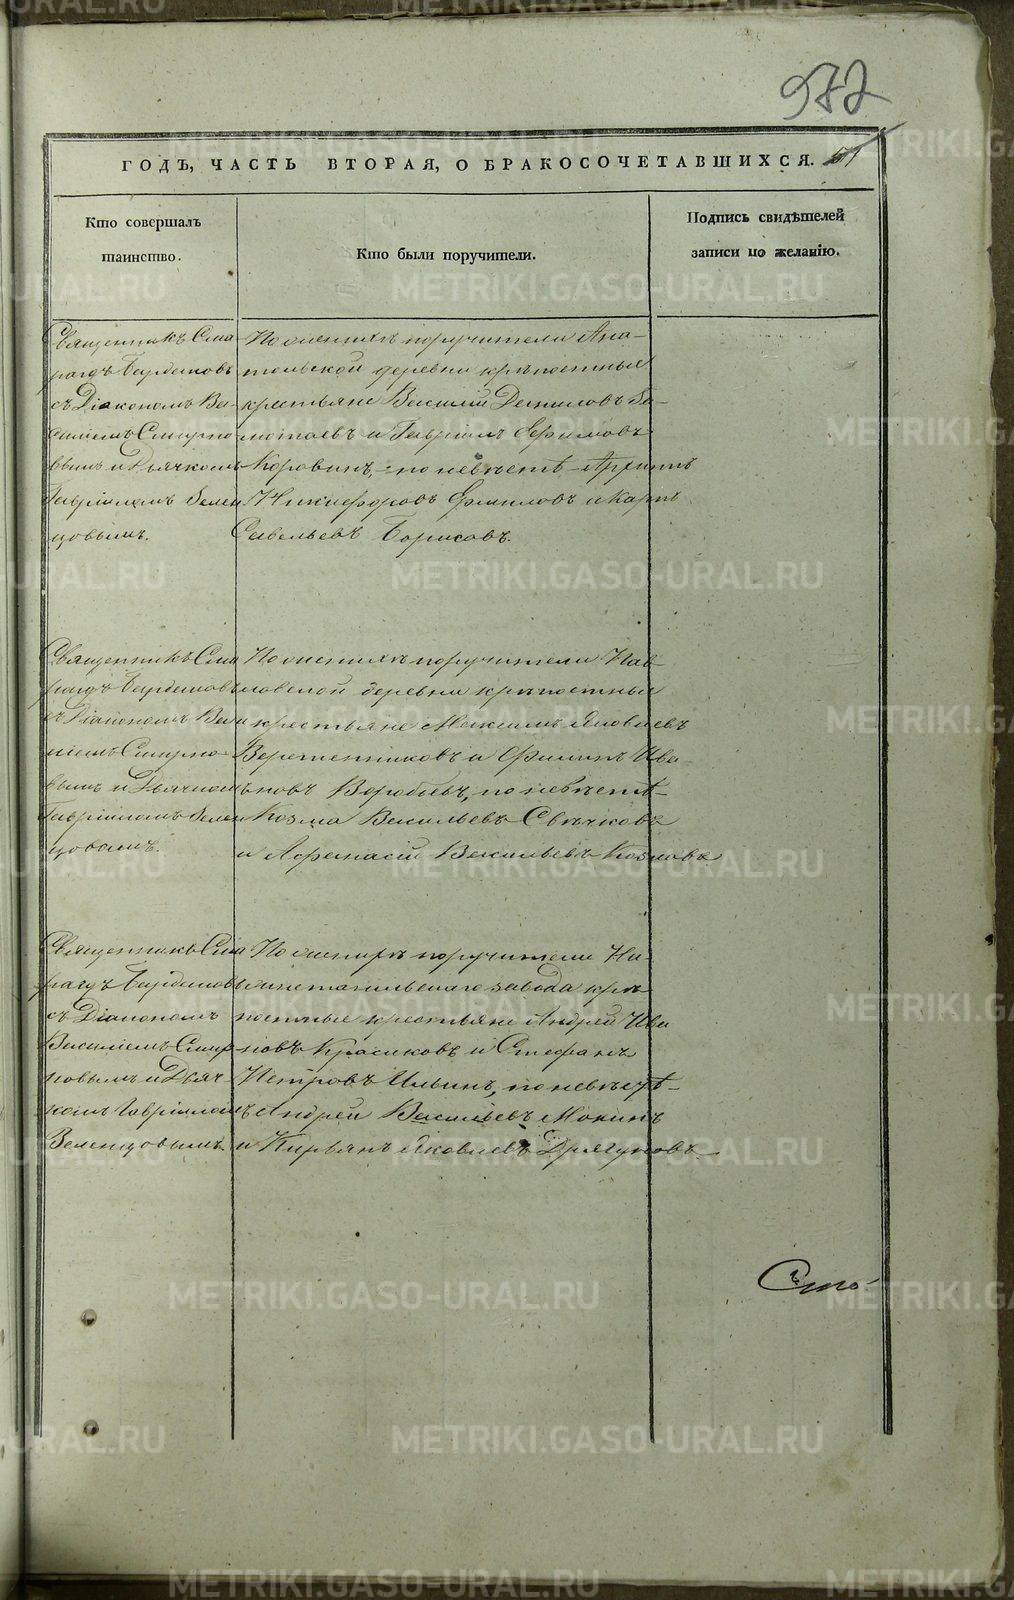 972
ГОДЪ, ЧАСТЬ ВТОРАЯ, О БРАКОСОЧЕТАВШИХСЯ. 51
Кто совершалъ
таинство.
Кто были поручители.
Подпись свидѣтелей
записи по желанію.
Священникъ Сма
рагдъ Бирюковъ
съ Діакономъ Ва-
силіемъ Смирно
вымъ и Дьячкомъ
Гавріиломъ Зелен
цовымъ.
По женихѣ поручители Ана-
тольской деревни крѣпостные
крестьяне Василий Даниловъ За-
мотаевъ и Гавріилъ Ефимовъ
Коровинъ, по невѣстѣ Архипъ
Никифоровъ Ермиловъ и Карпъ
Савельевъ Борисовъ.
Священникъ Сма
рагдъ Бирюковъ
съ Діакономъ Васи
ліемъ Смирно-
вымъ и Дьячкомъ
Гавріиломъ Зелен
цовымъ.
По женихѣ поручители Пав-
ловской деревни крѣпостные
крестьяне Максимъ Яковлевъ
Веретенниковъ и Филипъ Ива-
новъ Воробьевъ, по невѣстѣ
Козма Васильевъ Свѣчковъ
и Афанасій Васильевъ Козловъ
Священникъ Сма
рагдъ Бирюковъ
съ Діакономъ
Василіемъ Смир
новымъ и Дьяч
комъ Гавріиломъ
Зеленцовымъ.
По женихѣ поручители Ни-
жнетагильскаго завода крѣ
постные крестьяне Андрей Ива
новъ Красиковъ и Стефанъ
Петровъ Ильинъ, по невѣстѣ
Андрей Васильевъ Мокинъ
и Кирьянъ Яковлевъ Дрягуновъ
METRIKI.GASO-URAL.RU